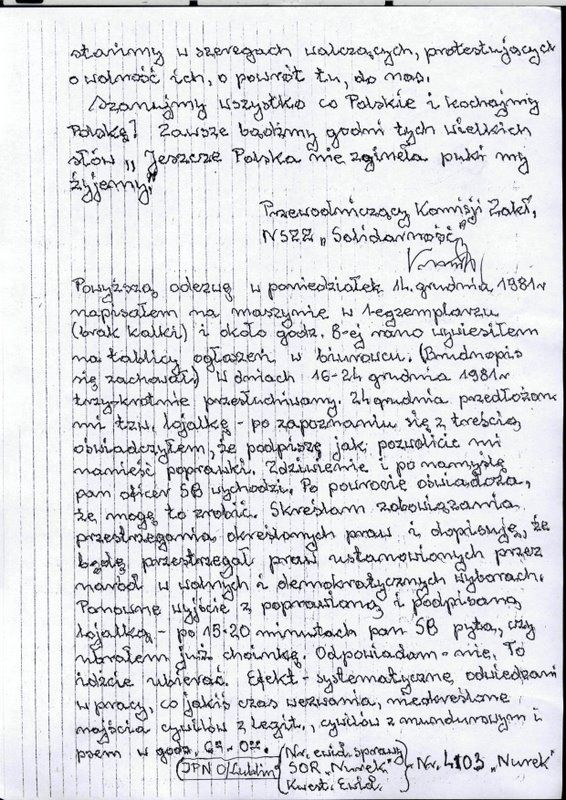 stańmy w szeregach walczących, protestujących
o wolność ich, o powrót tu, do nas.
Szanujmy wszystko co Polskie i kochajmy
Polskę! Zawsze bądźmy godni tych wielkich
słów „Jeszcze Polska nie zginęła puki my
żyjemy."
Przewodniczący Komisji Zakł.
NSZZ „Solidarność"
Powyższą odezwę w poniedziałek 14. grudnia 1981r
napisałem na maszynie w 1-egzemplarzu
(brak kalki) i około godz. 8-ej rano wywiesiłem
na tablicy ogłoszeń w biurowcu. (Brudnopis
się zachował) W dniach 16-24 grudnia 1981r
trzykrotnie przesłuchiwany. 24 grudnia przedłożono
mi tzw. lojalkę - po zapoznaniu się z treścią
oświadczyłem, że podpiszę jak pozwolicie mi
nanieść poprawki. Zdziwienie i po namyśle
pan oficer SB wychodzi. Po powrocie oświadcza,
że mogę to zrobić. Skreślam zobowiązania
przestrzegania określonych praw i dopisuję, że
będę przestrzegał praw ustanowionych przez
naród w wolnych i demokratycznych wyborach.
Ponowne wyjście z poprawioną i podpisaną
lojalką - po 15-20 minutach pan SB pyta, czy
ubrałem już choinkę. Odpowiadam - nie. To
idźcie ubierać. Efekt - systematyczne odwiedzani
w pracy, co jakiś czas wezwania, nieokreślone
najścia cywilów z legit., cywilów z mundurowym i
psem w godz.
IPN O/Lublin
Nr. ewid. sprawy
SOR „Nurek"
Kwest. Ewid.
Nr. 4103 „Nurek"